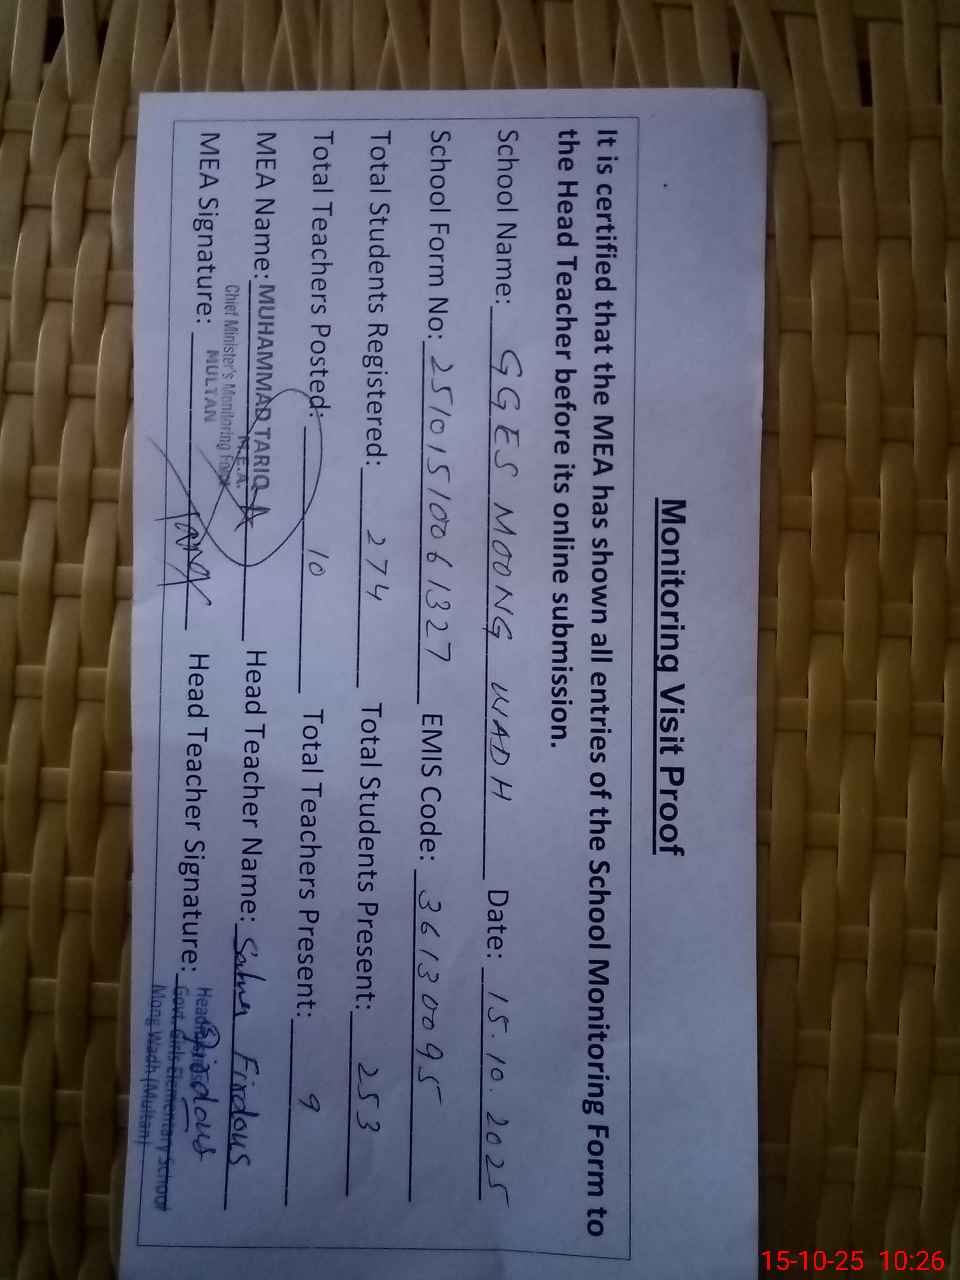 Monitoring Visit Proof
It is certified that the MEA has shown all entries of the School Monitoring Form to
the Head Teacher before its online submission.
School Name: GGES MOONG WADH Date: 15.10.2025
School Form No: 25101510061327 EMIS Code: 36130095
Total Students Registered: 274 Total Students Present: 253
Total Teachers Posted: 10 Total Teachers Present: 9
MEA Name: MUHAMMAD TARIQ Head Teacher Name: Salma Firdous
M.E.A.
Chief Minister's Monitoring Force
MULTAN
MEA Signature: Head Teacher Signature: Firdous
Govt. Girls Elementary School
Mong Wadh (Multan)
15-10-25 10:26